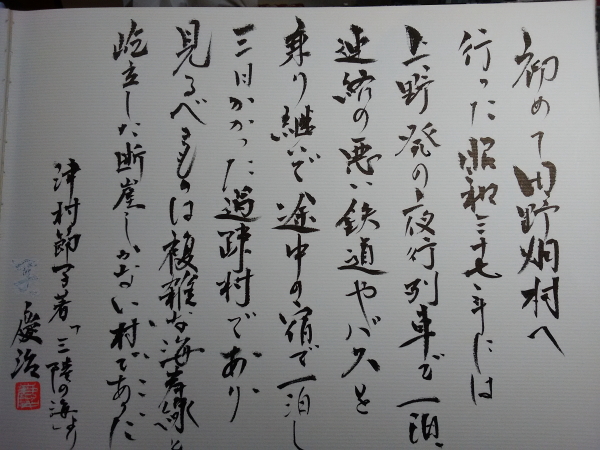 初めて田野畑村へ
行った昭和三十七年には
上野発の夜行列車で一泊、
連絡の悪い鉄道やバスを
乗り継いで途中の宿で一泊し
三日かかった過疎村であり
見るべきものは複雑な海岸線と
屹立した断崖しかない村であった
津村節子著「三陸の海」より
慶治